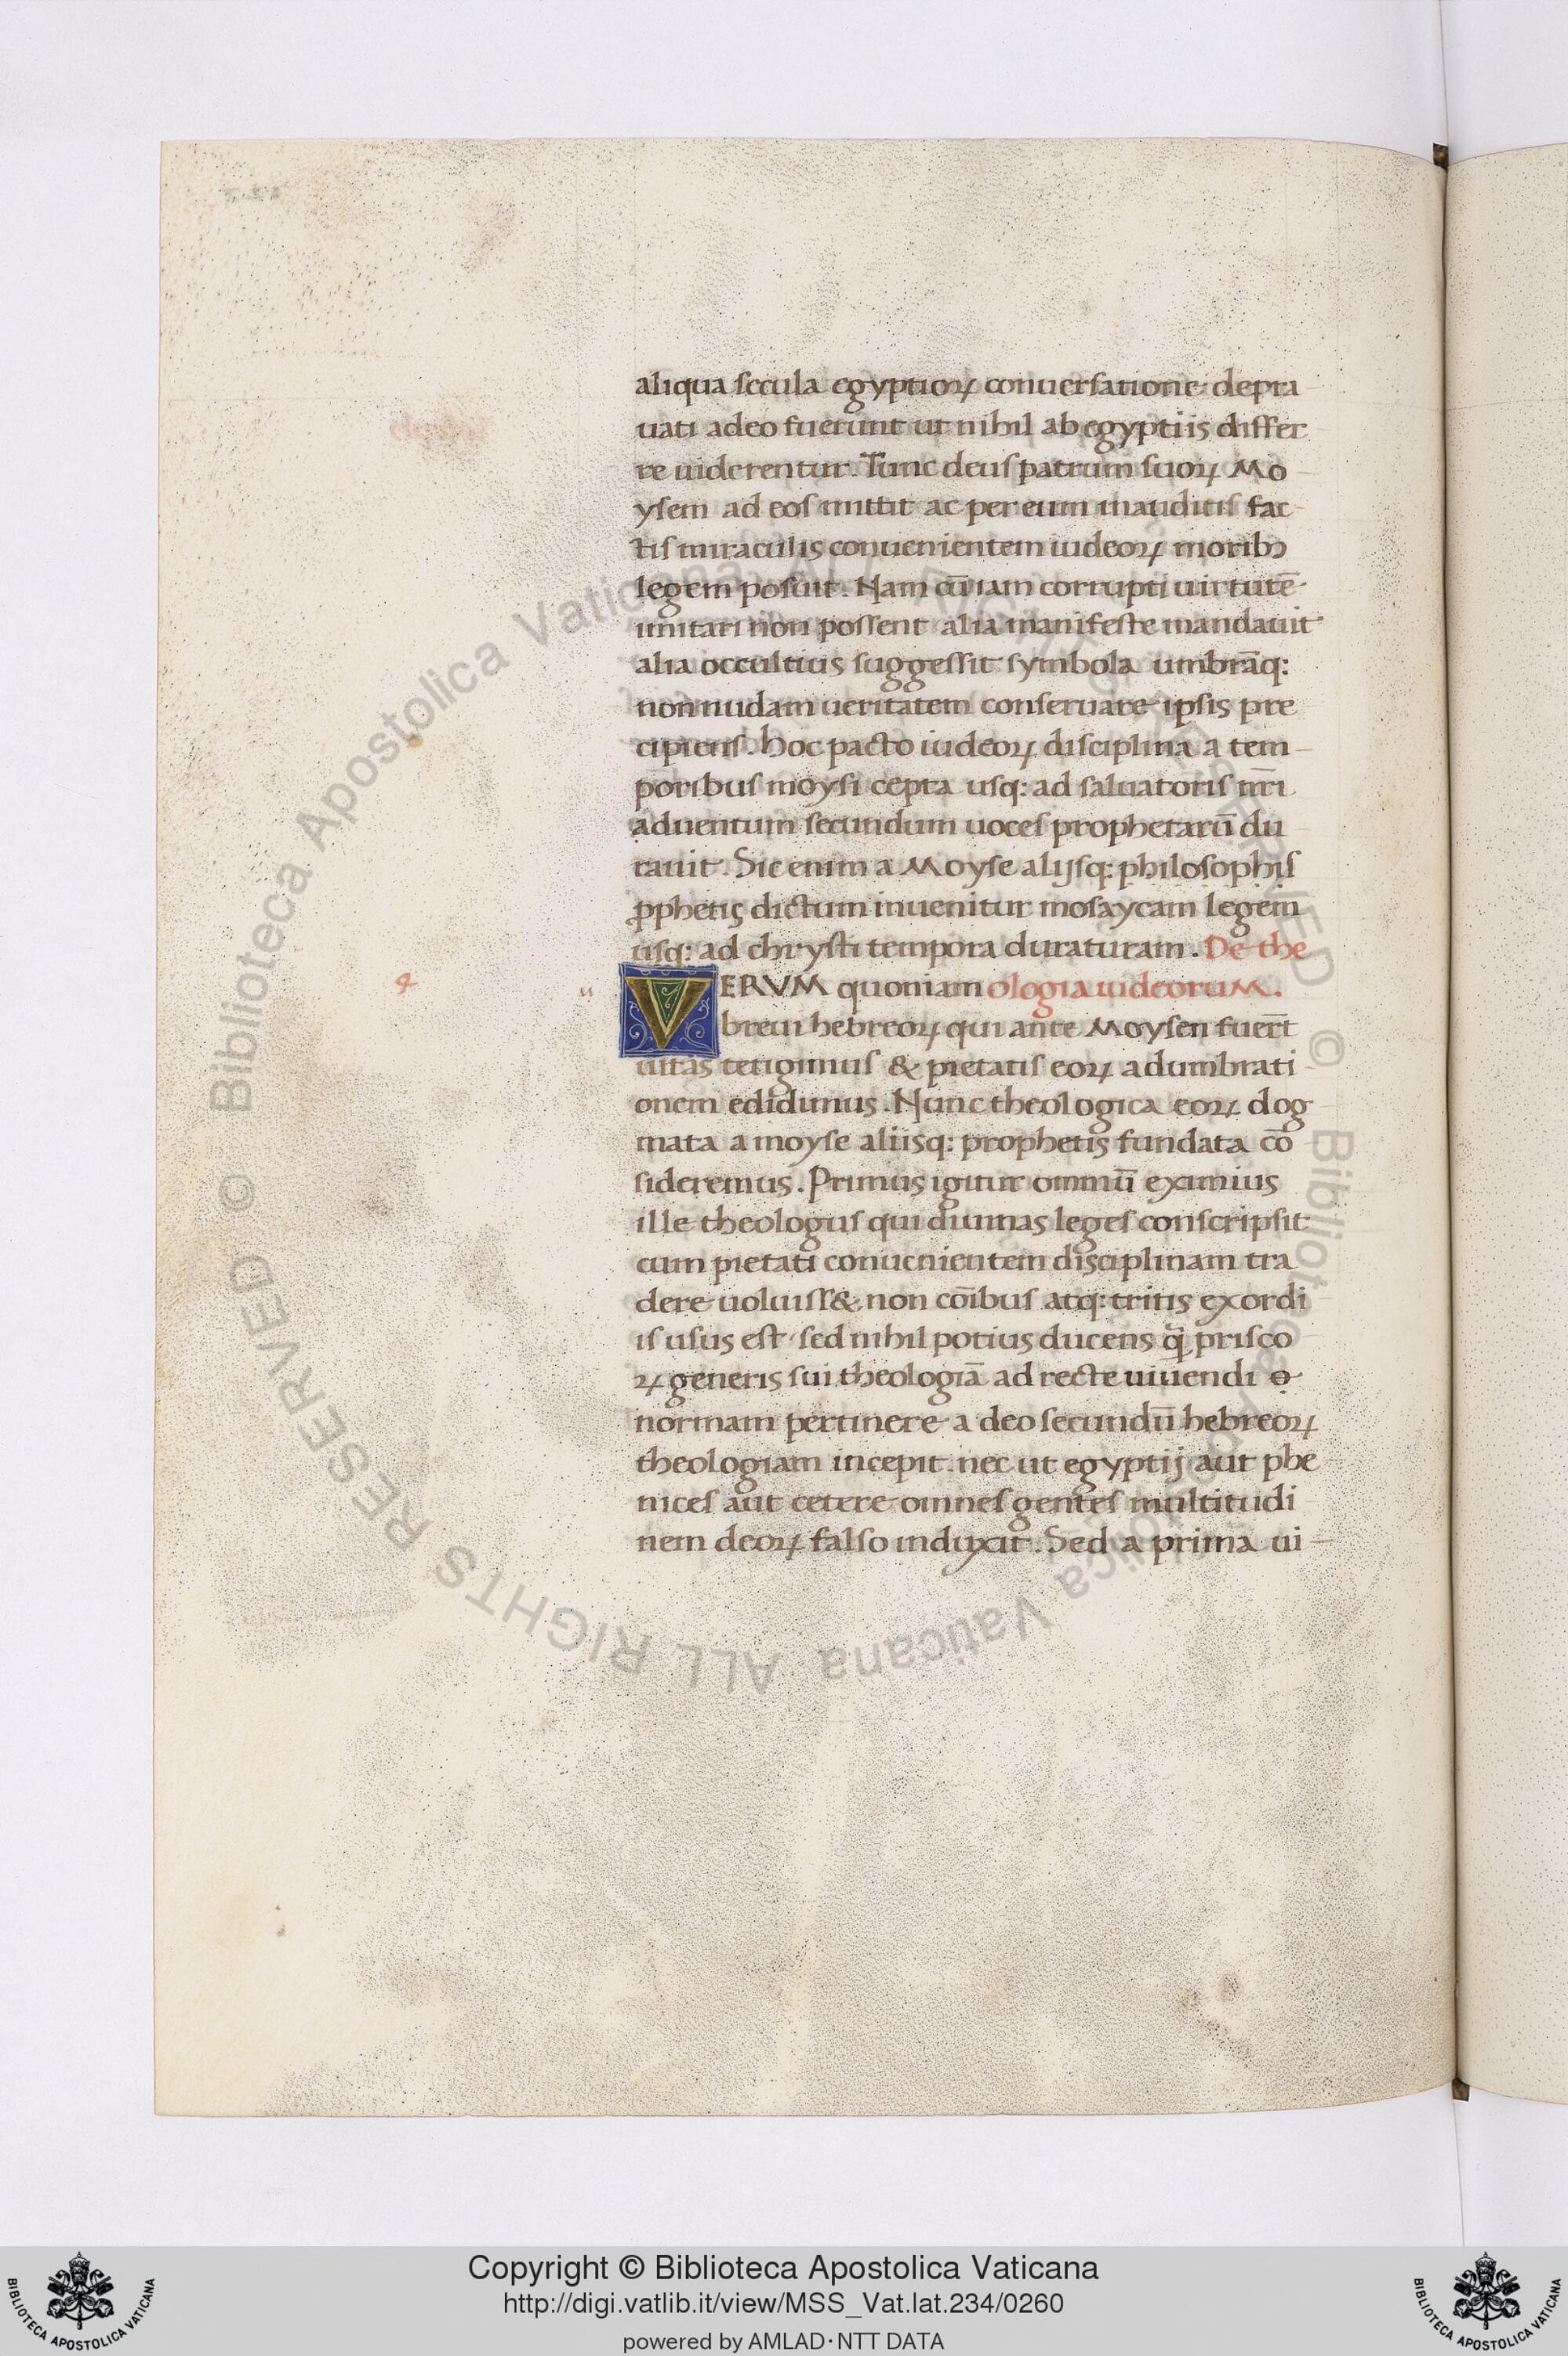 aliqua secula egyptioꝝ conuersatione depra
uati adeo fuerunt ut nihil ab egyptiis differ
re uiderentur. Tunc deus patrum suoꝝ Mo
ysem ad eos mittit ac per eum inauditis fac
tis miraculis conuenientem iudeoꝝ moribꝫ
legem posuit. Nam cū iam corrupti uirtutē
imitari non possent alia manifeste mandauit
alia occultius suggessit symbola umbrāq:
non nudam ueritatem conseruare ipsis pre
cipiens. Hoc pacto iudeoꝝ disciplina a tem
poribus moysi cepta usq: ad saluatoris nr̄i
aduentum secundum uoces prophetarū du
rauit. Sic enim a Moyse alijsq: philosophis
ꝓphetis dictum inuenitur mosaycam legem
usq: ad chrysti tempora duraturam. De the
VERVM quoniam ologia iudeoruM.
breui hebreoꝝ qui ante Moysen fuer̄t
uitas tetigimus & pietatis eoꝝ adumbrati
onem edidimus. Nunc theologica eoꝝ dog
mata a moyse aliisq: prophetis fundata cō
sideremus. Primus igitur omniū eximius
ille theologus qui diuinas leges conscripsit
cum pietati conuenientem disciplinam tra
dere uoluiss& non cōibus atq: tritis exordi
is usus est sed nihil potius ducens q̄ prisco
ꝝ generis sui theologiā ad recte uiuendi o
normam pertinere a deo secundū hebreoꝝ
theologiam incepit. nec ut egyptij aut phe
nices aut cetere omnes gentes multitudi
nem deoꝝ falso induxit. Sed a prima ui
u
© Biblioteca Apostolica Vaticana ALL RIGHTS RESERVED © Biblioteca Apostolica Vaticana ALL RIGHTS RESERVED
Copyright © Biblioteca Apostolica Vaticana
http://digi.vatlib.it/view/MSS_Vat.lat.234/0260
powered by AMLAD·NTT DATA
BIBLIOTECA APOSTOLICA VATICANA
BIBLIOTECA APOSTOLICA VATICANA